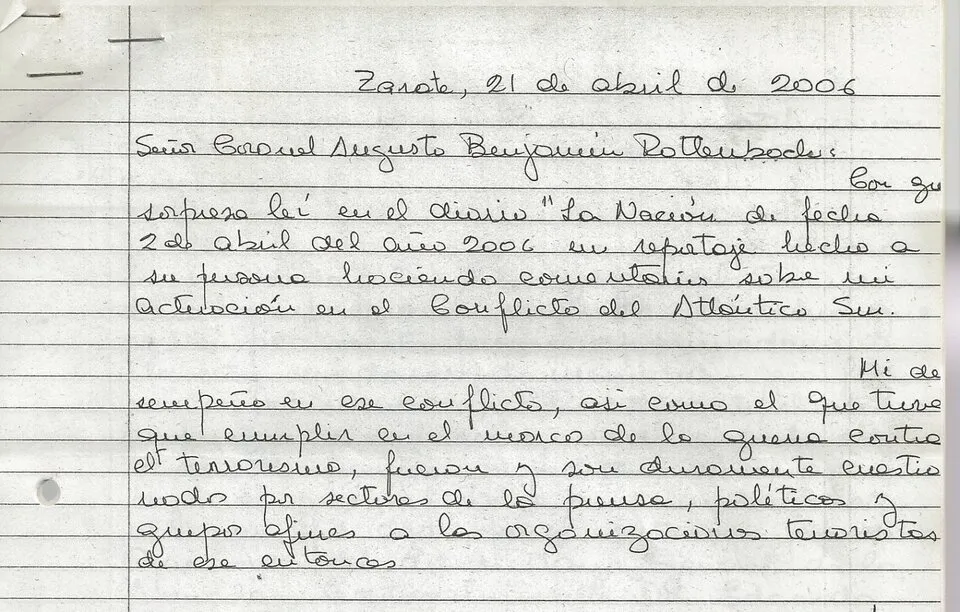 Zarate, 21 de abril de 2006
Señor Coronel Augusto Benjamín Rattenbach:
Con gu
sorpresa leí en el diario "La Nación de fecha
2 de abril del año 2006 un reportaje hecho a
su persona haciendo comentarios sobre mi
actuación en el Conflicto del Atlántico Sur.
Mi de
sempeño en ese conflicto, así como el que tuve
que cumplir en el marco de la guerra contra
el terrorismo, fueron y son duramente cuestio
nados por sectores de la prensa, políticos y
grupos afines a las organizaciones terroristas
de ese entonces